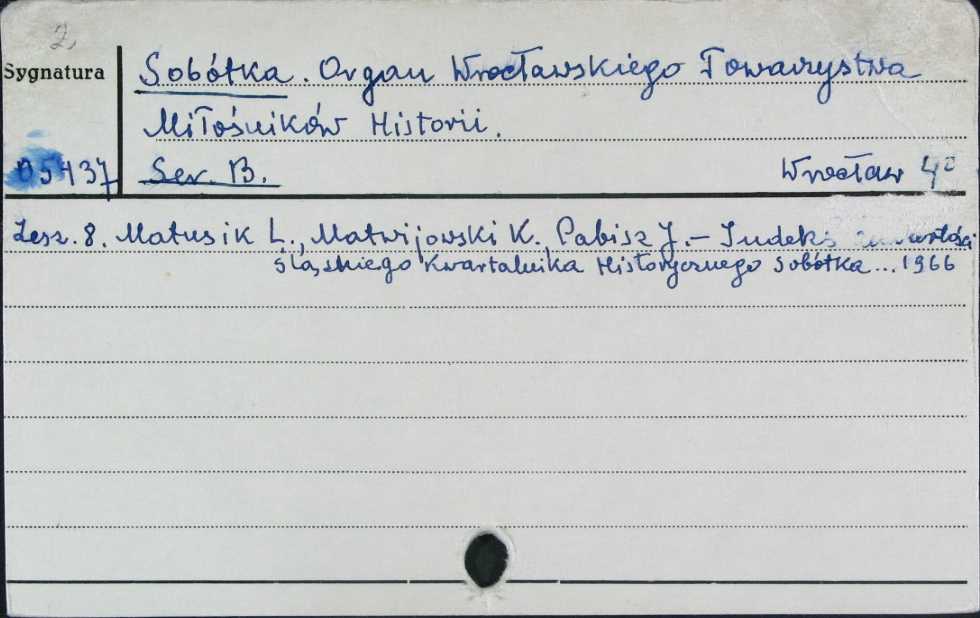 2.
Sygnatura
Sobótka. Organ Wrocławskiego Towarzystwa
Miłośników Historii.
05437
Ser. B. Wrocław 4°
Zesz. 8. Matusik L., Matwijowski K., Pabisz J. – Indeks zawartości
Śląskiego Kwartalnika Historycznego Sobótka... 1966